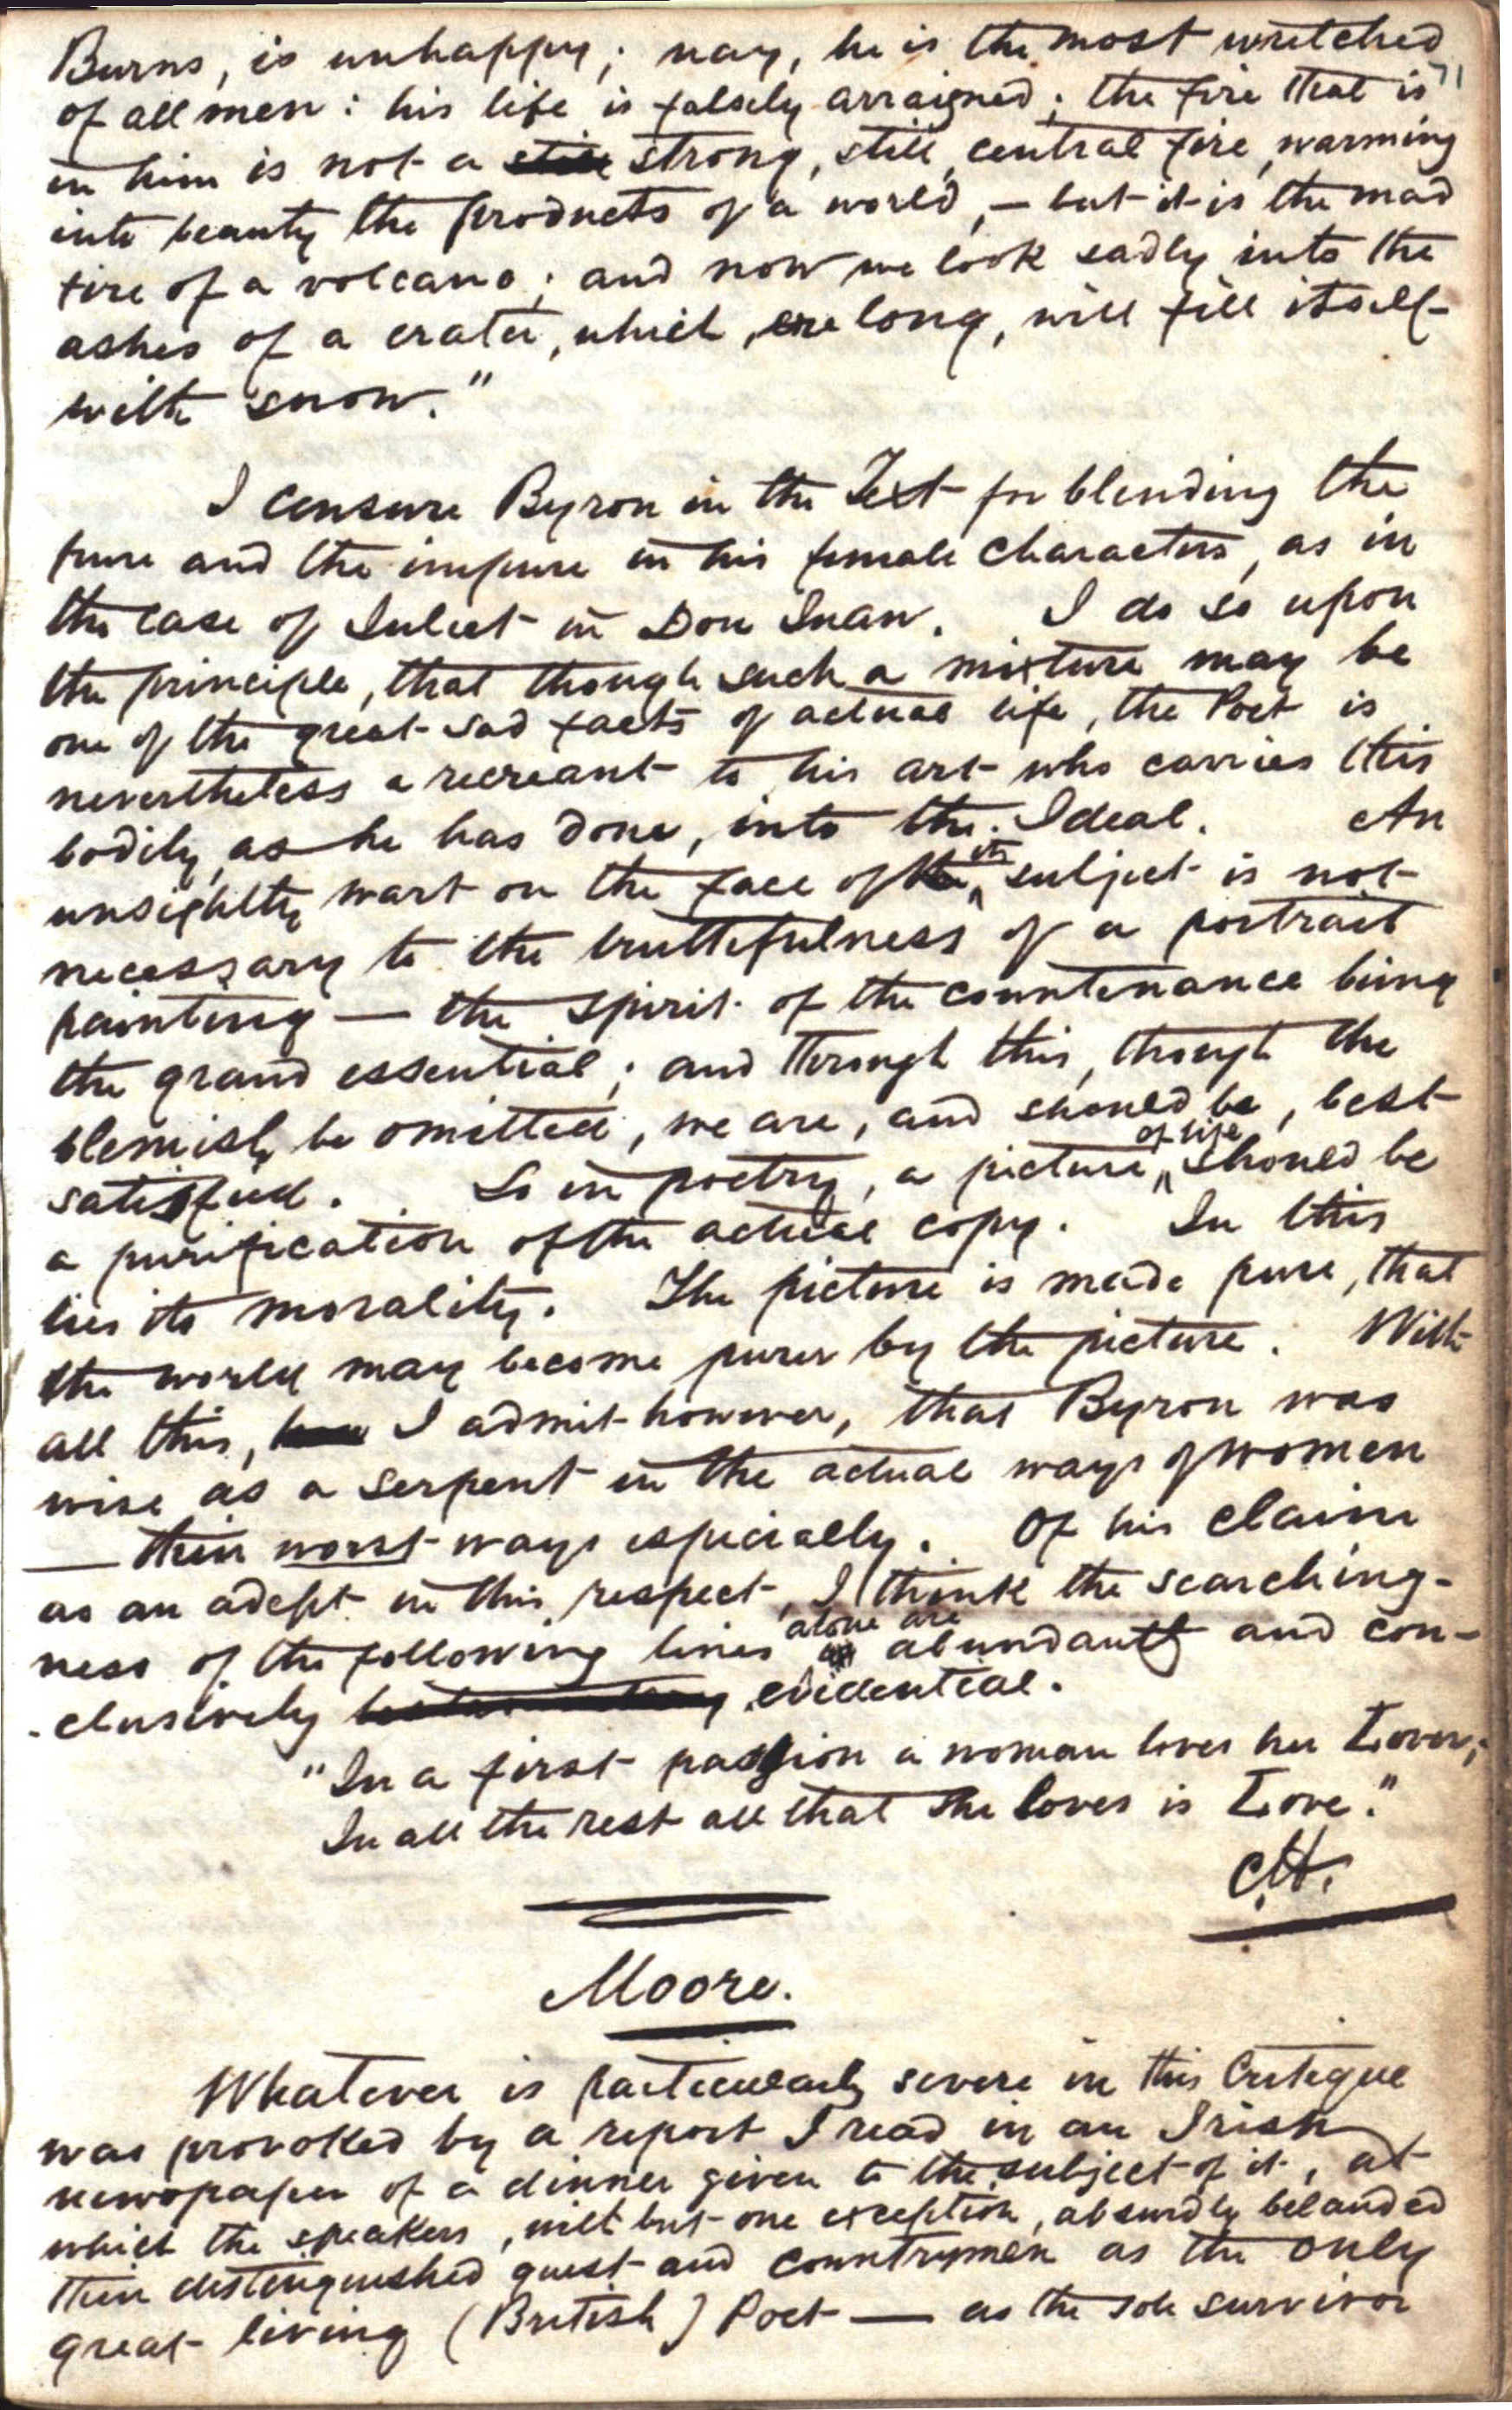 Burns, is unhappy; nay, he is the most wretched
71
of all men: his life is falsely arraigned; the fire that is
in him is not a still strong, still, central fire, warming
into beauty the products of a world, — but it is the mad
fire of a volcano; and now we look sadly into the
ashes of a crater, which, ere long, will fill itself
with snow."
I censure Byron in the Text for blending the
pure and the impure in his female characters, as in
the case of Juliet in Don Juan. I do so upon
the principle, that though such a mixture may be
one of the great sad facts of actual life, the Poet is
nevertheless a recreant to his art who carries this
bodily, as he has done, into the Ideal. An
unsightly wart on the face of the its subject is not
necessary to the truthfulness of a portrait
painting — the spirit of the countenance being
the grand essential; and through this, though the
blemish be omitted, we are, and should be, best
satisfied. So in poetry, a picture of life should be
a purification of the actual copy. In this
lies its morality. The picture is made pure, that
the world may become purer by the picture. With
all this, I admit however, that Byron was
wise as a serpent in the actual ways of women
— their worst ways especially. Of his claim
as an adept in this respect, I think the searching-
ness of the following lines alone are abundantly and con-
-clusively evidential.
"In a first passion a woman loves her Lover;
In all the rest all that she loves is Love."
C.H.
Moore.
Whatever is particularly severe in this Critique
was provoked by a report I read in an Irish
newspaper of a dinner given to the subject of it, at
which the speakers, with but one exception, absurdly belauded
their distinguished guest and countryman as the only
great living (British) Poet — as the sole survivor